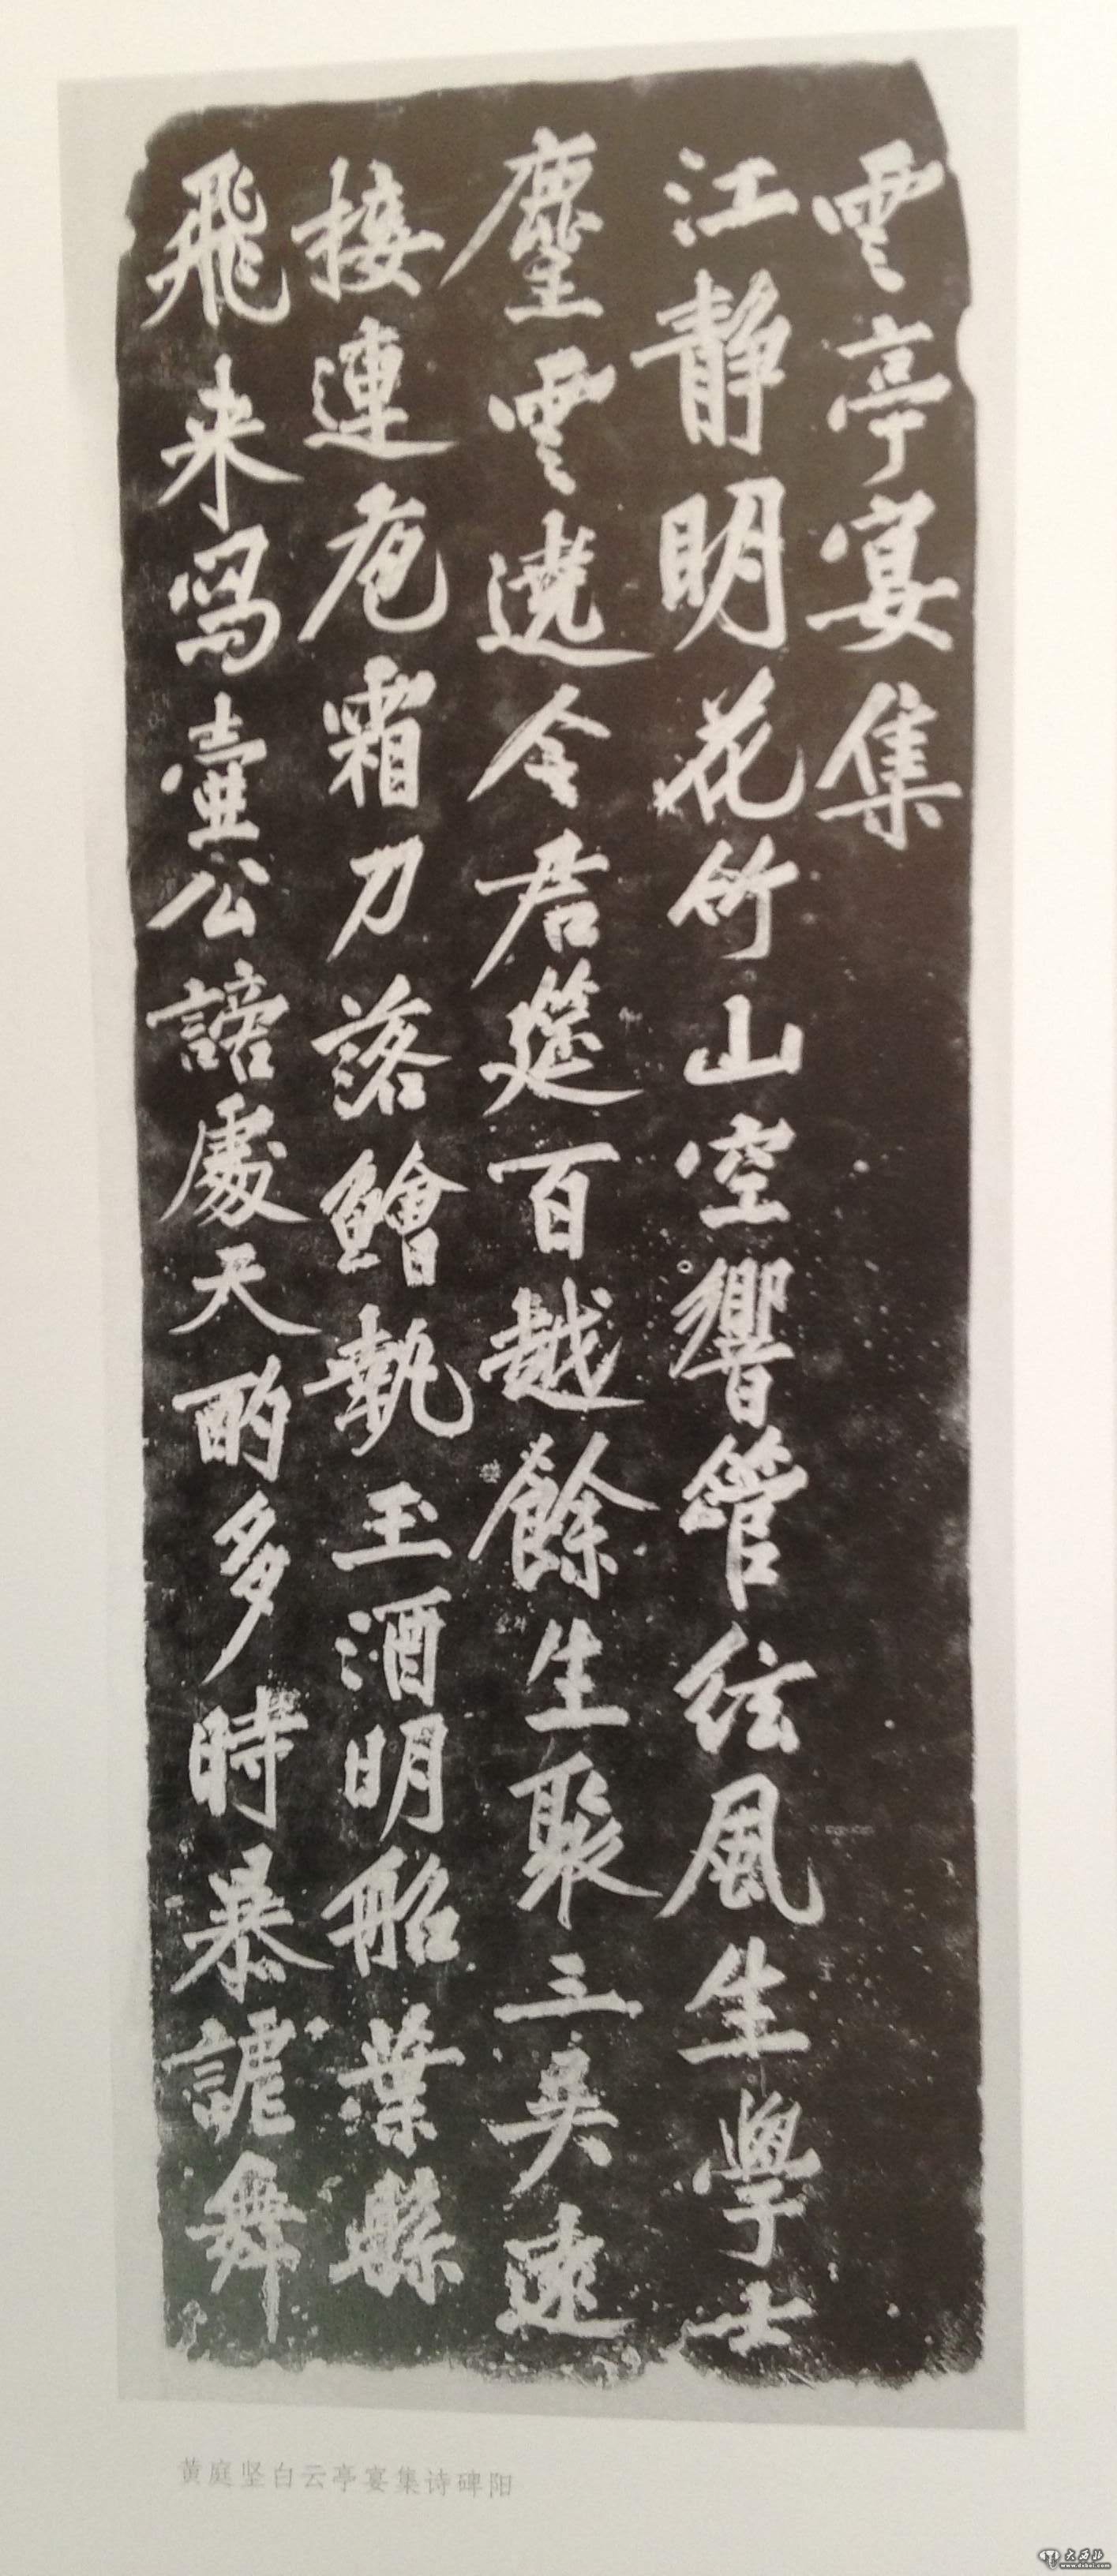 雲亭宴集
江靜明花竹山空響管絃風生學士
麈雲遶令君筵百越餘生聚三吳遠
接連庖霜刀落鱠執玉酒明船葉縣
飛来舄壺公謫處天酌多時暴謔舞
黄庭坚白云亭宴集诗碑阳
大西北
www.dsbei.com